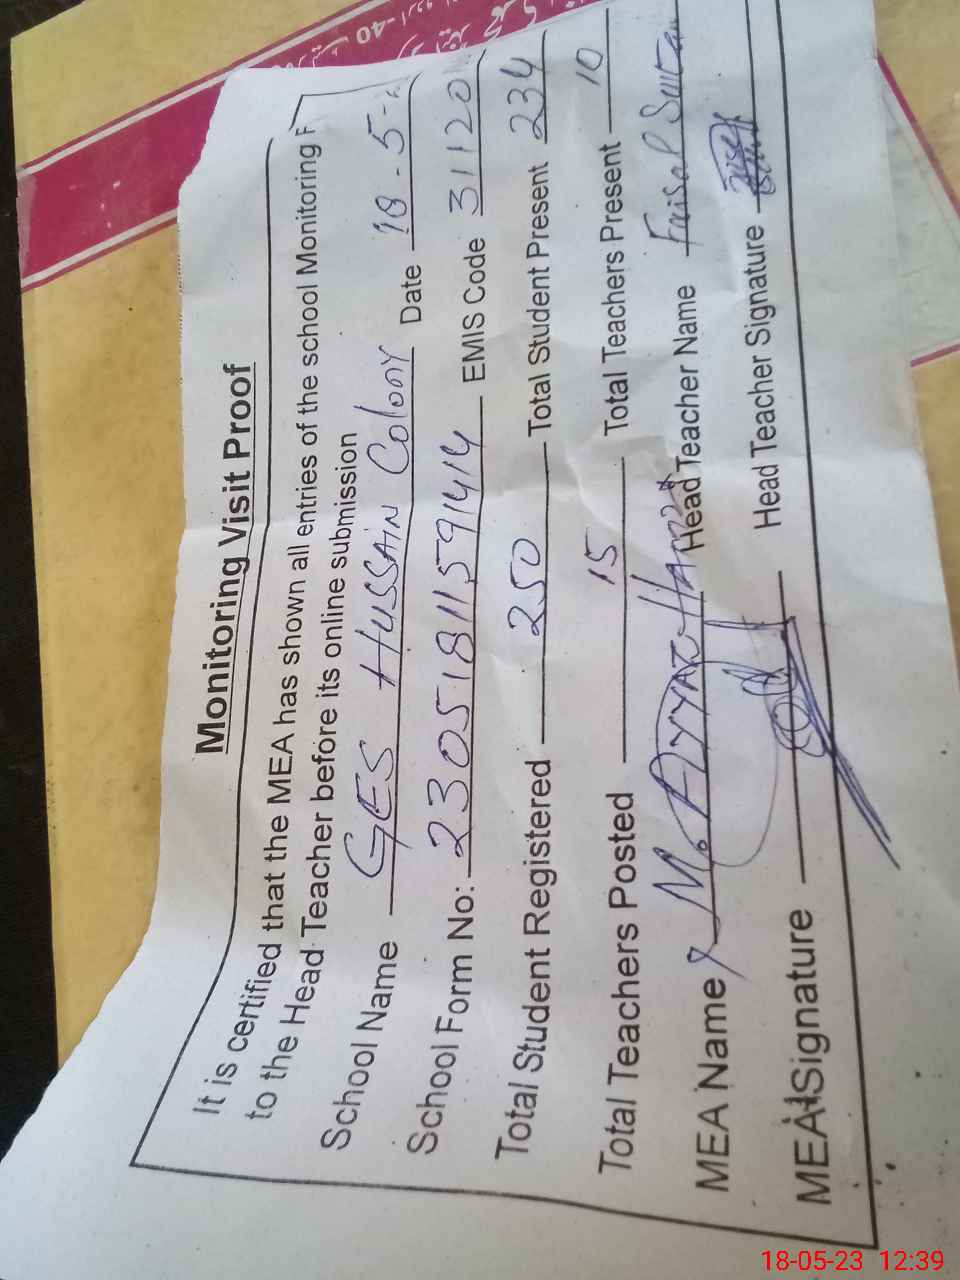 Monitoring Visit Proof
It is certified that the MEA has shown all entries of the school Monitoring F
to the Head Teacher before its online submission
School Name GES HUSSAIN Colony Date 18-5-
School Form No: 23051811591414 EMIS Code 31120
Total Student Registered 250 Total Student Present 234
Total Teachers Posted 15 Total Teachers Present 10
MEA Name M. AYYAZ HAMZA Head Teacher Name Faisal
MEA Signature Head Teacher Signature
18-05-23 12:39